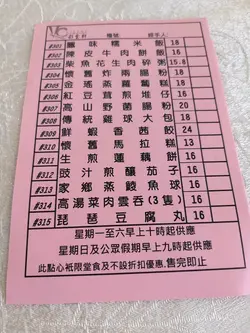 檯號 經手人
#301 臘味糯米飯 18
#302 陳皮牛肉餅飯 18
#303 柴魚花生肉碎粥 15.8
#304 懷舊炸兩腸粉 18
#305 金瑤蒸蘿蔔糕 18
#306 紅豆茸煎堆仔 16
#307 高山野菌腸粉 20
#308 傳統雞球大包 18
#309 鮮蝦香茜餃 24
#310 懷舊馬拉糕 13
#311 生煎蓮藕餅 16
#312 豉汁煎釀茄子 16
#313 家鄉蒸鯪魚球 16
#314 高湯菜肉雲吞(3隻) 16
#315 琵琶豆腐丸 16
星期一至六早上十時起供應
星期日及公眾假期早上九時起供應
此點心衹限堂食及不設折扣優惠,售完即止